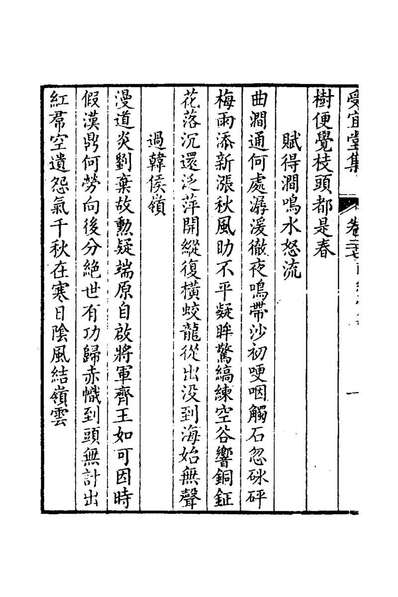 受宜堂集
卷三
一
樹便覺枝頭都是春
賦得澗鳴水怒流
曲澗通何處潺湲徹夜鳴帶沙初哽咽觸石忽砯砰
梅雨添新漲秋風助不平疑眸驚縞練空谷響銅鉦
花落沉還泛萍開縱復橫蛟龍從出没到海始無聲
過韓侯嶺
漫道炎劉棄故勲疑端原自啟將軍齊王如可因時
假漢鼎何勞向後分絕世有功歸赤幟到頭無計出
紅帬空遺怨氣千秋在寒日陰風結嶺雲